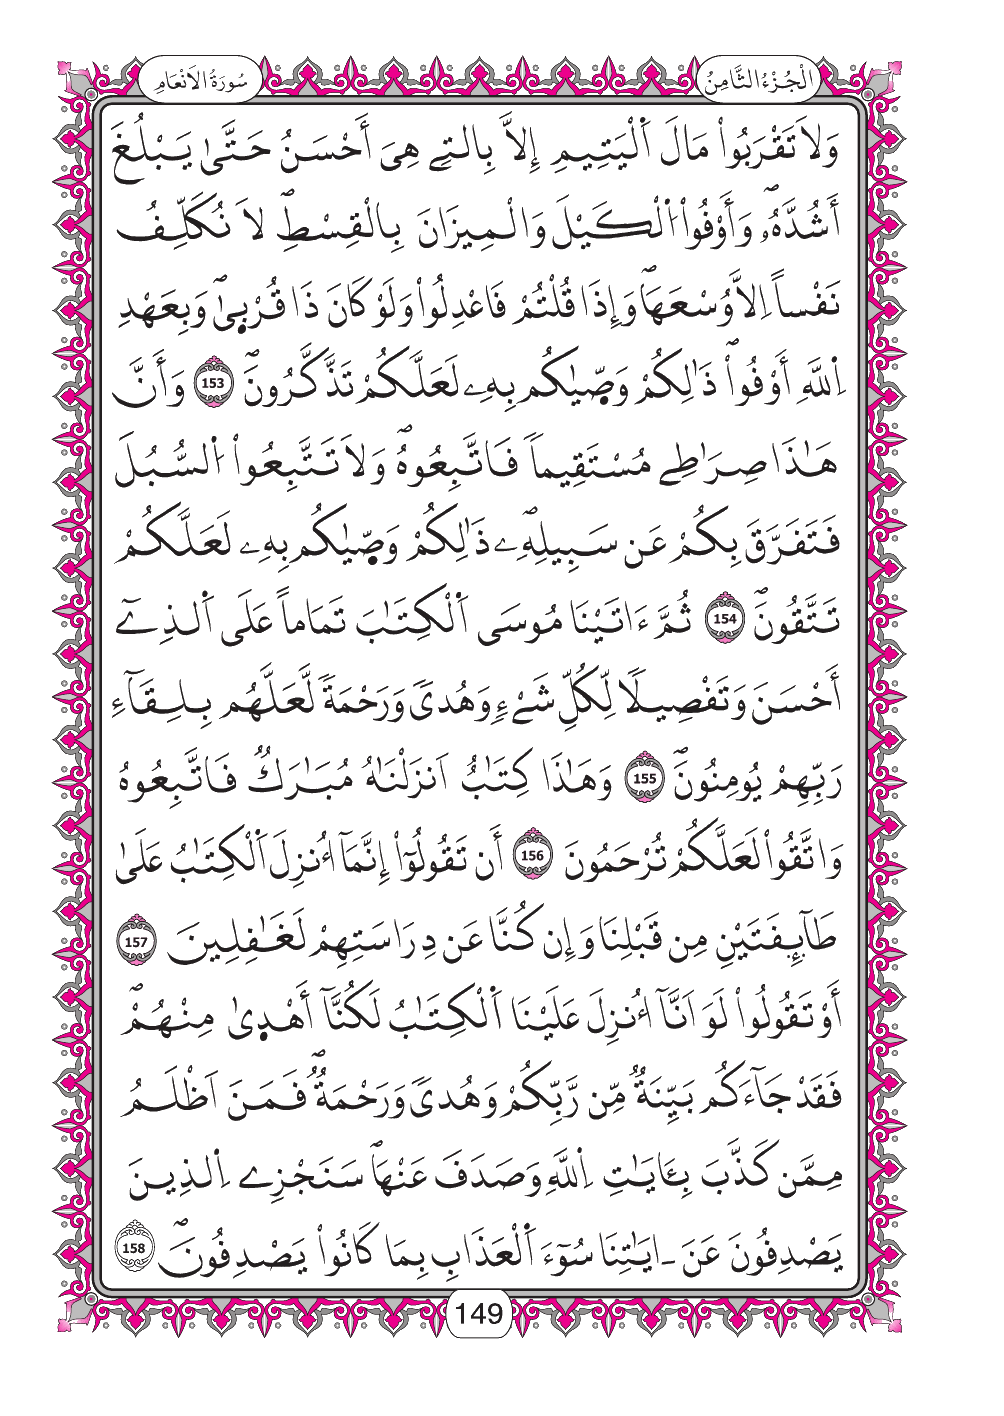 الْجُزْءُ الثَّامِنُ
سُورَةُ الاَنْعَامِ
وَلاَ تَقْرَبُواْ مَالَ اَ۬لْيَتِيمِ إِلاَّ بِالتِے هِيَ أَحْسَنُ حَتَّىٰ يَبْلُغَ
أَشُدَّهُۥۖ وَأَوْفُواْ اُ۬لْكَيْلَ وَالْمِيزَانَ بِالْقِسْطِۖ لَا نُكَلِّفُ
نَفْساً اِلاَّ وُسْعَهَاۖ وَإِذَا قُلْتُمْ فَاعْدِلُواْ وَلَوْ كَانَ ذَا قُرْب۪ىٰۖ وَبِعَهْدِ
اِ۬للَّهِ أَوْفُواْۖ ذَٰلِكُمْ وَصّ۪يٰكُم بِهِۦ لَعَلَّكُمْ تَذَّكَّرُونَۖ 153 وَأَنَّ
هَٰذَا صِرَٰطِے مُسْتَقِيماً فَاتَّبِعُوهُۖ وَلاَ تَتَّبِعُواْ اُ۬لسُّبُلَ
فَتَفَرَّقَ بِكُمْ عَن سَبِيلِهِۦۖ ذَٰلِكُمْ وَصّ۪يٰكُم بِهِۦ لَعَلَّكُمْ
تَتَّقُونَۖ 154 ثُمَّ ءَاتَيْنَا مُوسَى اَ۬لْكِتَٰبَ تَمَاماً عَلَى اَ۬لذِےٓ
أَحْسَنَ وَتَفْصِيلًا لِّكُلِّ شَےْءٍ وَهُدىً وَرَحْمَةً لَّعَلَّهُم بِلِقَآءِ
رَبِّهِمْ يُومِنُونَۖ 155 وَهَٰذَا كِتَٰبٌ اَنزَلْنَٰهُ مُبَٰرَكٌ فَاتَّبِعُوهُ
وَاتَّقُواْ لَعَلَّكُمْ تُرْحَمُونَ 156 أَن تَقُولُوٓاْ إِنَّمَآ أُنزِلَ اَ۬لْكِتَٰبُ عَلَىٰ
طَآئِفَتَيْنِ مِن قَبْلِنَا وَإِن كُنَّا عَن دِرَاسَتِهِمْ لَغَٰفِلِينَ 157
أَوْ تَقُولُواْ لَوَ اَنَّآ أُنزِلَ عَلَيْنَا اَ۬لْكِتَٰبُ لَكُنَّآ أَهْد۪ىٰ مِنْهُمْۖ
فَقَدْ جَآءَكُم بَيِّنَةٌ مِّن رَّبِّكُمْ وَهُدىً وَرَحْمَةٌۖ فَمَنَ اَظْلَمُ
مِمَّن كَذَّبَ بِـَٔايَٰتِ اِ۬للَّهِ وَصَدَفَ عَنْهَاۖ سَنَجْزِے اِ۬لذِينَ
يَصْدِفُونَ عَنَ ـ اٰيَٰتِنَا سُوٓءَ اَ۬لْعَذَابِ بِمَا كَانُواْ يَصْدِفُونَۖ 158
149